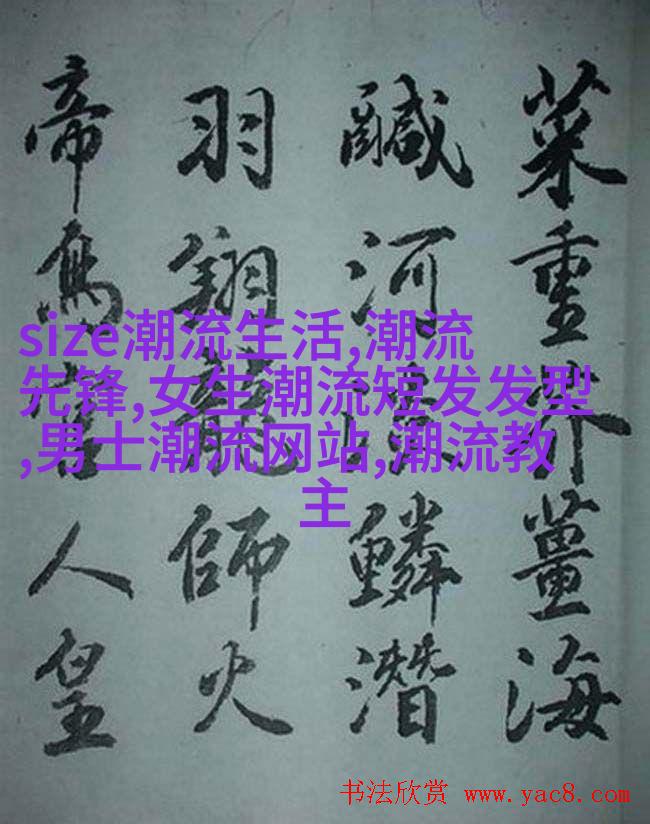 菜重芥薑海
鹹河鱗潛
羽翔龍師火
帝鳥人皇
size潮流生活,潮流
先锋,女生潮流短发发型
,男士潮流网站,潮流教
主
书法欣赏 www.yac8.com